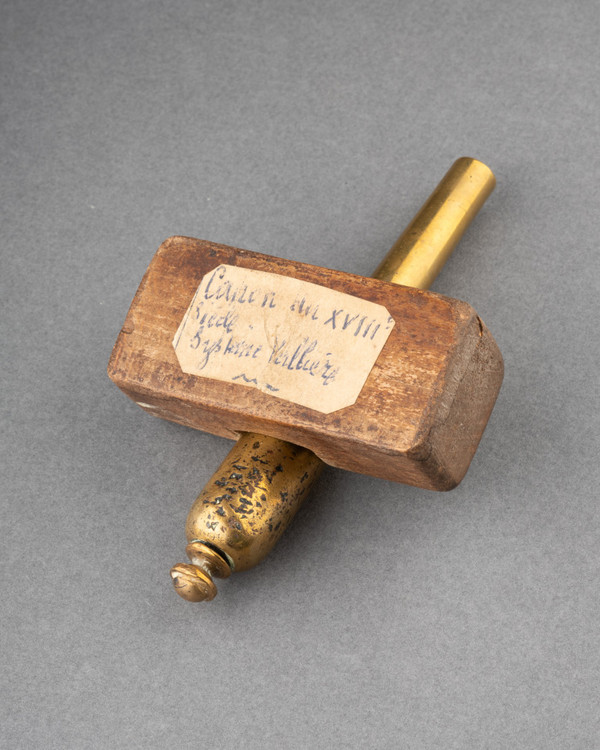 Canon du XVIIIe
Siècle
Système Vallière